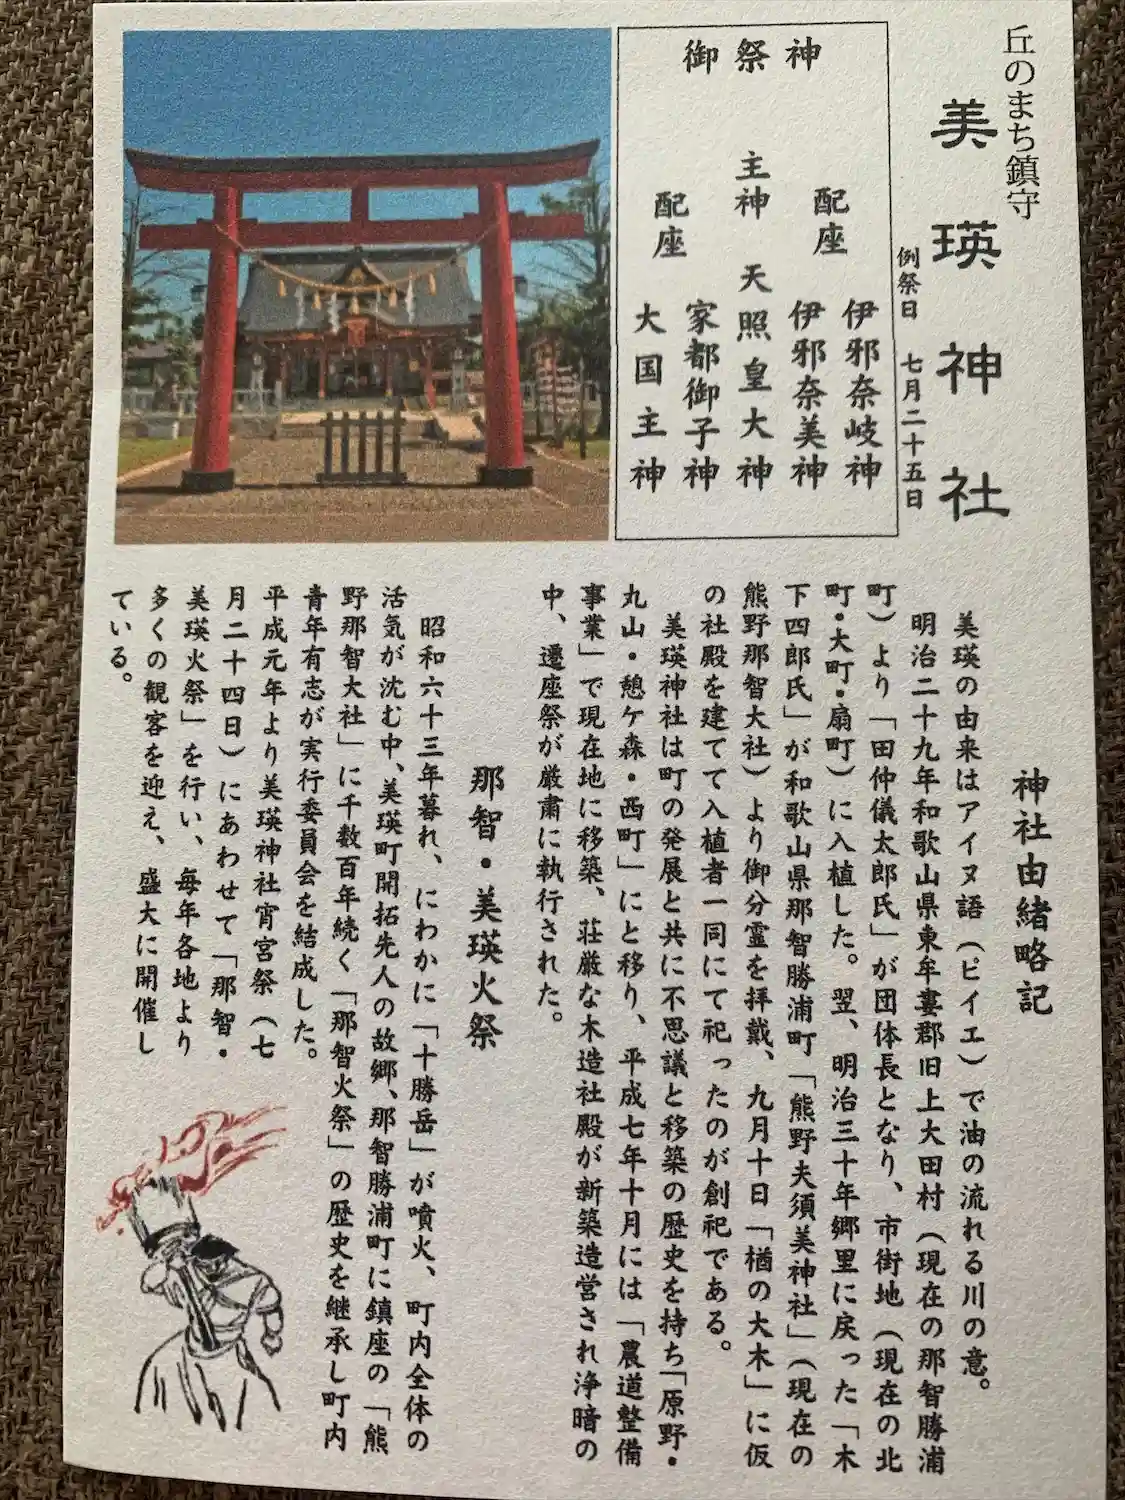 丘のまち鎮守
美瑛神社
例祭日 七月二十五日
御祭神
配座 伊邪奈岐神
伊邪奈美神
主神 天照皇大神
配座 家都御子神
大国主神
神社由緒略記
美瑛の由来はアイヌ語（ピイエ）で油の流れる川の意。
明治二十九年和歌山県東牟婁郡旧上大田村（現在の那智勝浦
町）より「田仲儀太郎氏」が団体長となり、市街地（現在の北
町・大町・扇町）に入植した。翌、明治三十年郷里に戻った「木
下四郎氏」が和歌山県那智勝浦町「熊野夫須美神社」（現在の
熊野那智大社）より御分霊を拝戴、九月十日「楢の大木」に仮
の社殿を建てて入植者一同にて祀ったのが創祀である。
美瑛神社は町の発展と共に不思議と移築の歴史を持ち「原野・
丸山・憩ケ森・西町」にと移り、平成七年十月には「農道整備
事業」で現在地に移築、荘厳な木造社殿が新築造営され浄暗の
中、遷座祭が厳粛に執行された。
那智・美瑛火祭
昭和六十三年暮れ、にわかに「十勝岳」が噴火、町内全体の
活気が沈む中、美瑛町開拓先人の故郷、那智勝浦町に鎮座の「熊
野那智大社」に千数百年続く「那智火祭」の歴史を継承し町内
青年有志が実行委員会を結成した。
平成元年より美瑛神社宵宮祭（七
月二十四日）にあわせて「那智・
美瑛火祭」を行い、毎年各地より
多くの観客を迎え、盛大に開催し
ている。